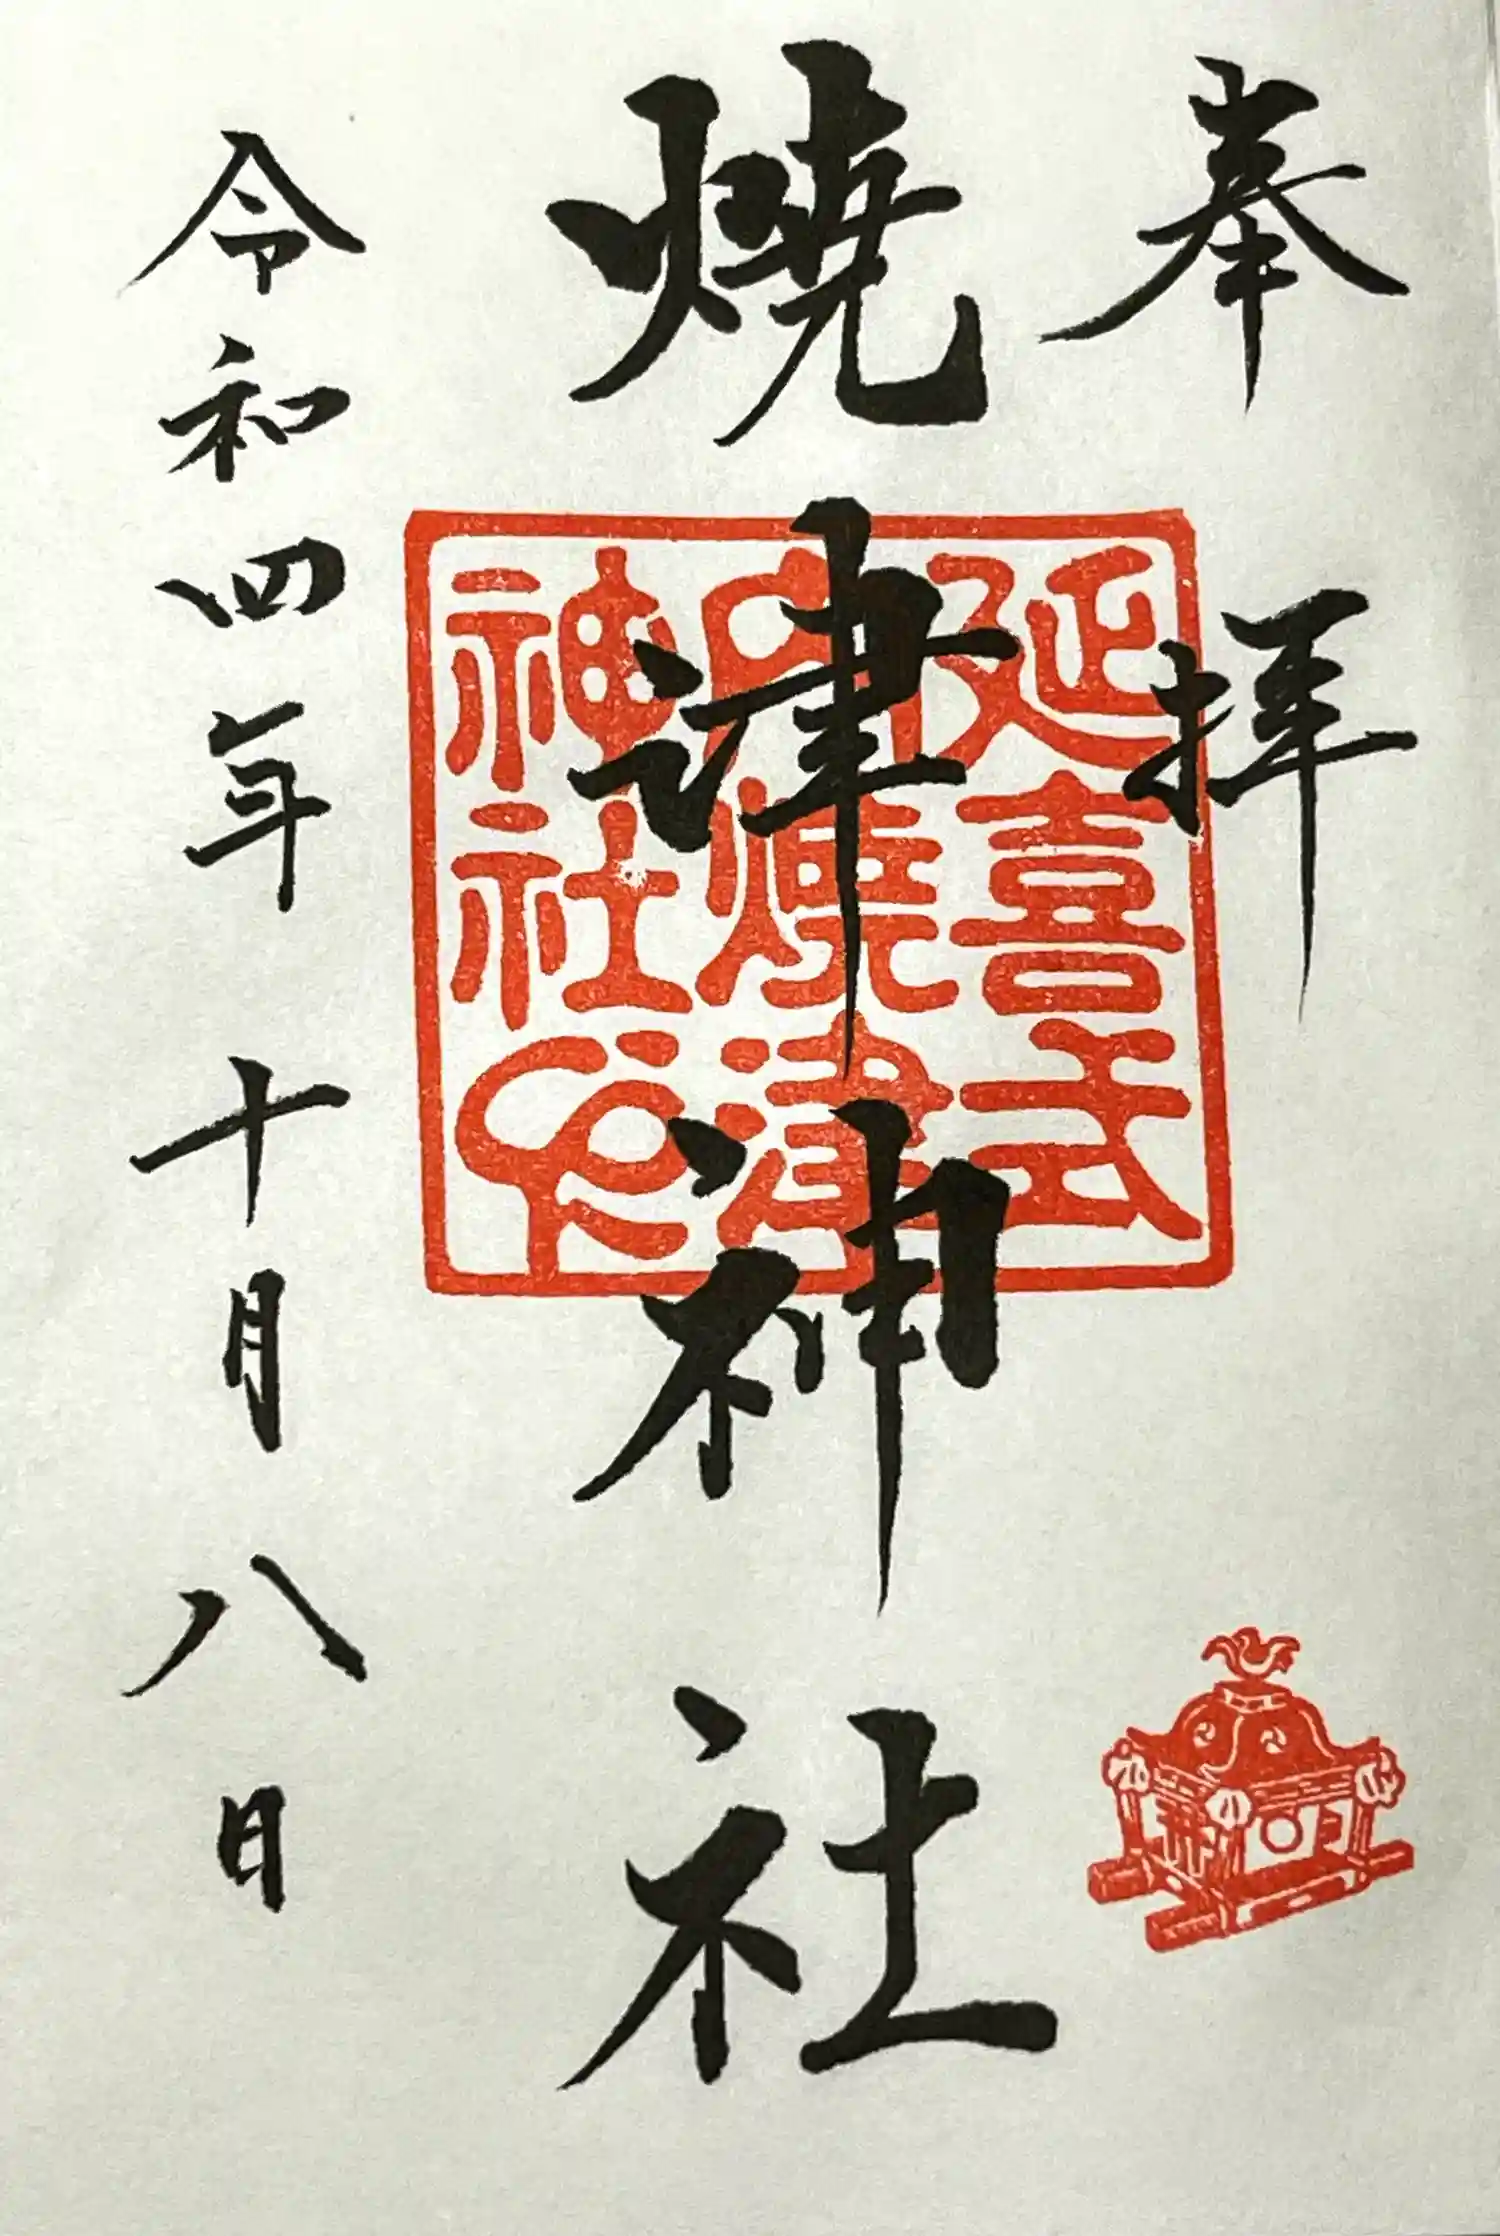 奉拝
焼津神社
延喜式
内焼津
神社之印
令和四年十月八日